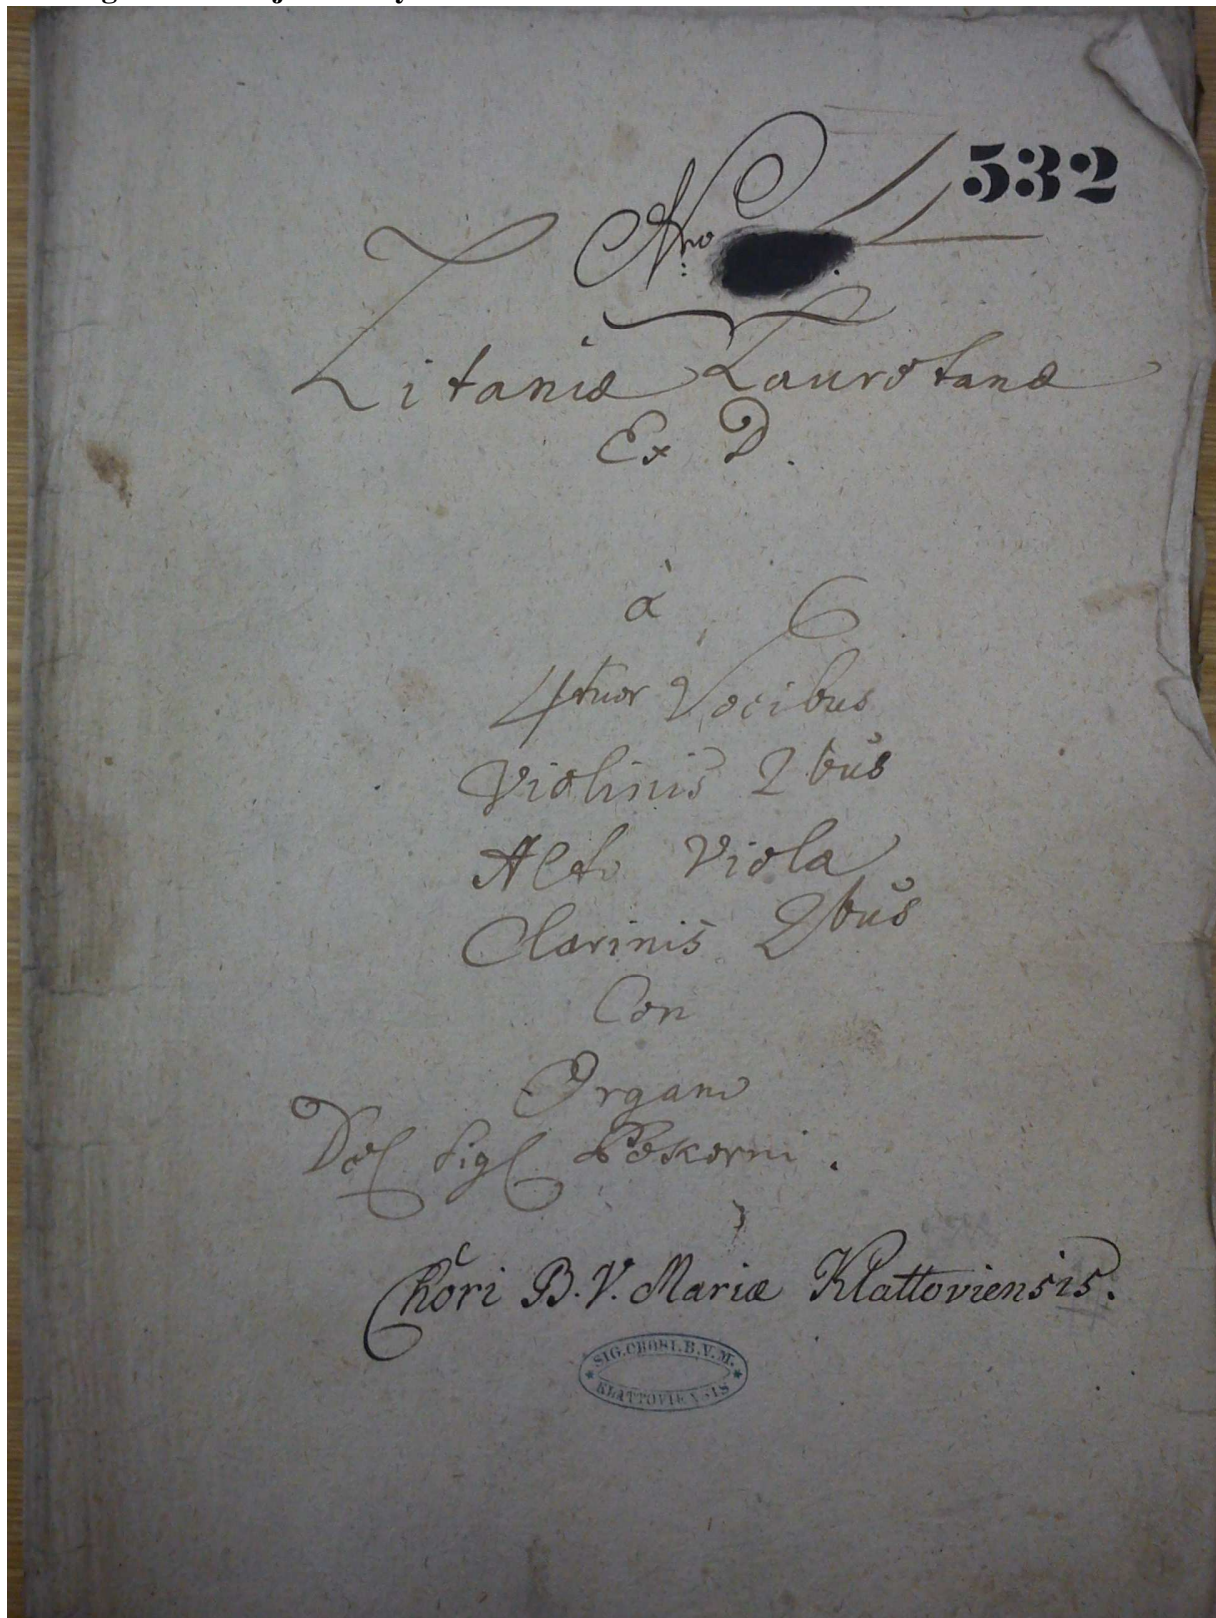 532
Nro
Litaniæ Lauretanæ
Ex D.
à
4tuor Vocibus
Violinis 2bus
Alto Viola
Clarinis 2bus
Con
Organo
Del Sigl Pokorni.
Chori B.V. Mariæ Klattoviensis.
SIG.CHORI.B.V.M.
KLATTOVIENSIS